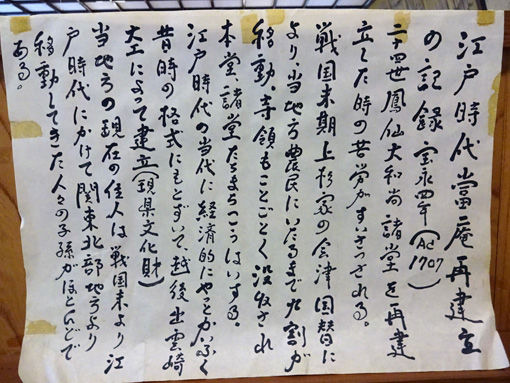 江戸時代當庵再建立
の記録宝永四年(AC1707)
二十四世鳳仙大和尚諸堂を再建
立した時の苦労がすいさつされる。
戦国末期上杉家の会津国替に
より、当地方農民にいたるまで九割が
移動、寺領もことごとく没收され
本堂、諸堂たちまちこうはいする。
江戸時代の当代に経済的にやっとかいふく
昔時の格式にもとずいて、越後出雲崎
大工によって建立(現県文化財)
当地方の現在の住人は戦国末より江
戸時代にかけて関東北部地方より
移動してきた人々の子孫がほとんどで
ある。